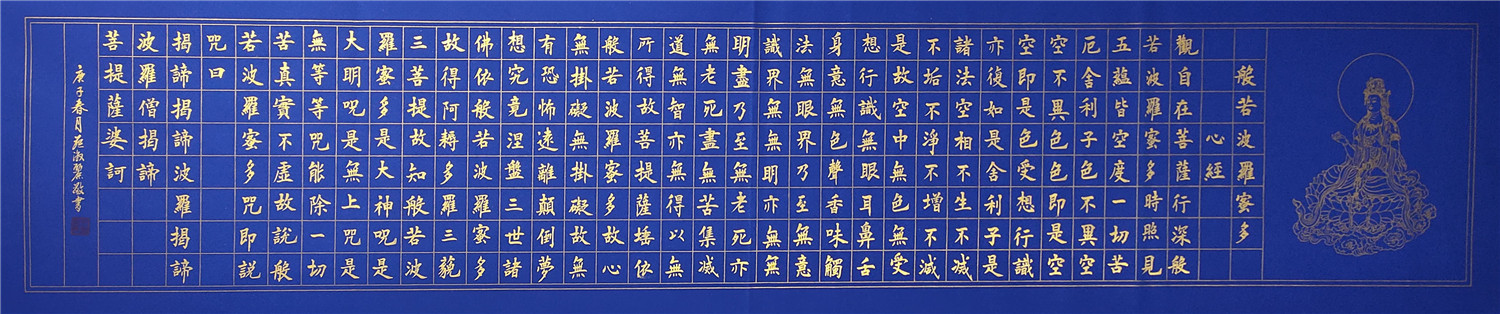 般若波羅蜜多
心經
觀自在菩薩行深般
若波羅蜜多時照見
五蘊皆空度一切苦
厄舍利子色不異空
空不異色色即是空
空即是色受想行識
亦復如是舍利子是
諸法空相不生不滅
不垢不淨不增不減
是故空中無色無受
想行識無眼耳鼻舌
身意無色聲香味觸
法無眼界乃至無意
識界無無明亦無無
明盡乃至無老死亦
無老死盡無苦集滅
道無智亦無得以無
所得故菩提薩埵依
般若波羅蜜多故心
無掛礙無掛礙故無
有恐怖遠離顛倒夢
想究竟涅盤三世諸
佛依般若波羅蜜多
故得阿耨多羅三藐
三菩提故知般若波
羅蜜多是大神咒是
大明咒是無上咒是
無等等咒能除一切
苦真實不虛故說般
若波羅蜜多咒即說
咒曰
揭諦揭諦波羅揭諦
波羅僧揭諦
菩提薩婆訶
庚子春月淑麗敬書